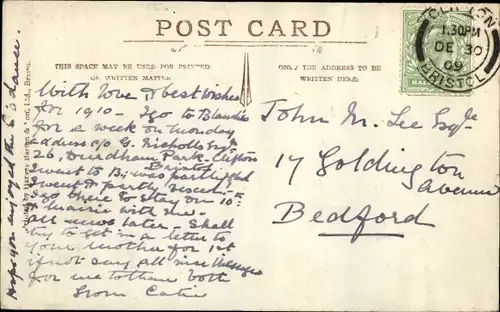 POST CARD
THIS SPACE MAY BE USED FOR PRINTED
OR WRITTEN MATTER
ONLY THE ADDRESS TO BE
WRITTEN HERE.
CLIFTON
1.30PM
DE 30
09
BRISTOL
With love & best wishes
for 1910 - I go to
for a week on Monday
address c/o G. Nicholls Esqr
26, Durdham Park. Clifton
Bristol
I went to B; was
I went & partly
I go there to stay on 10th
with me.
all news later - Shall
try to get in a letter to
your Mother for 1st
if not say all nice messages
for me to them both
from Catie
Hope you enjoyed the S's dance.
John M. Lee Esqr
17 Goldington
Avenue
Bedford